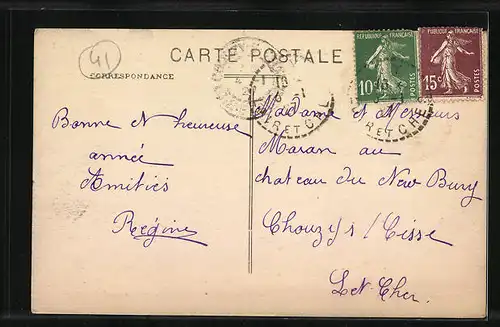 41
CARTE POSTALE
CORRESPONDANCE
REPUBLIQUE FRANÇAISE
10c
POSTES
REPUBLIQUE FRANÇAISE
15c
POSTES
LOIR ET CHER
Bonne et heureuse
année
Amitiés
Régine
Madame et Messieurs
Maran au
chateau du New Bury
Chouzys/Cisse
L et Cher